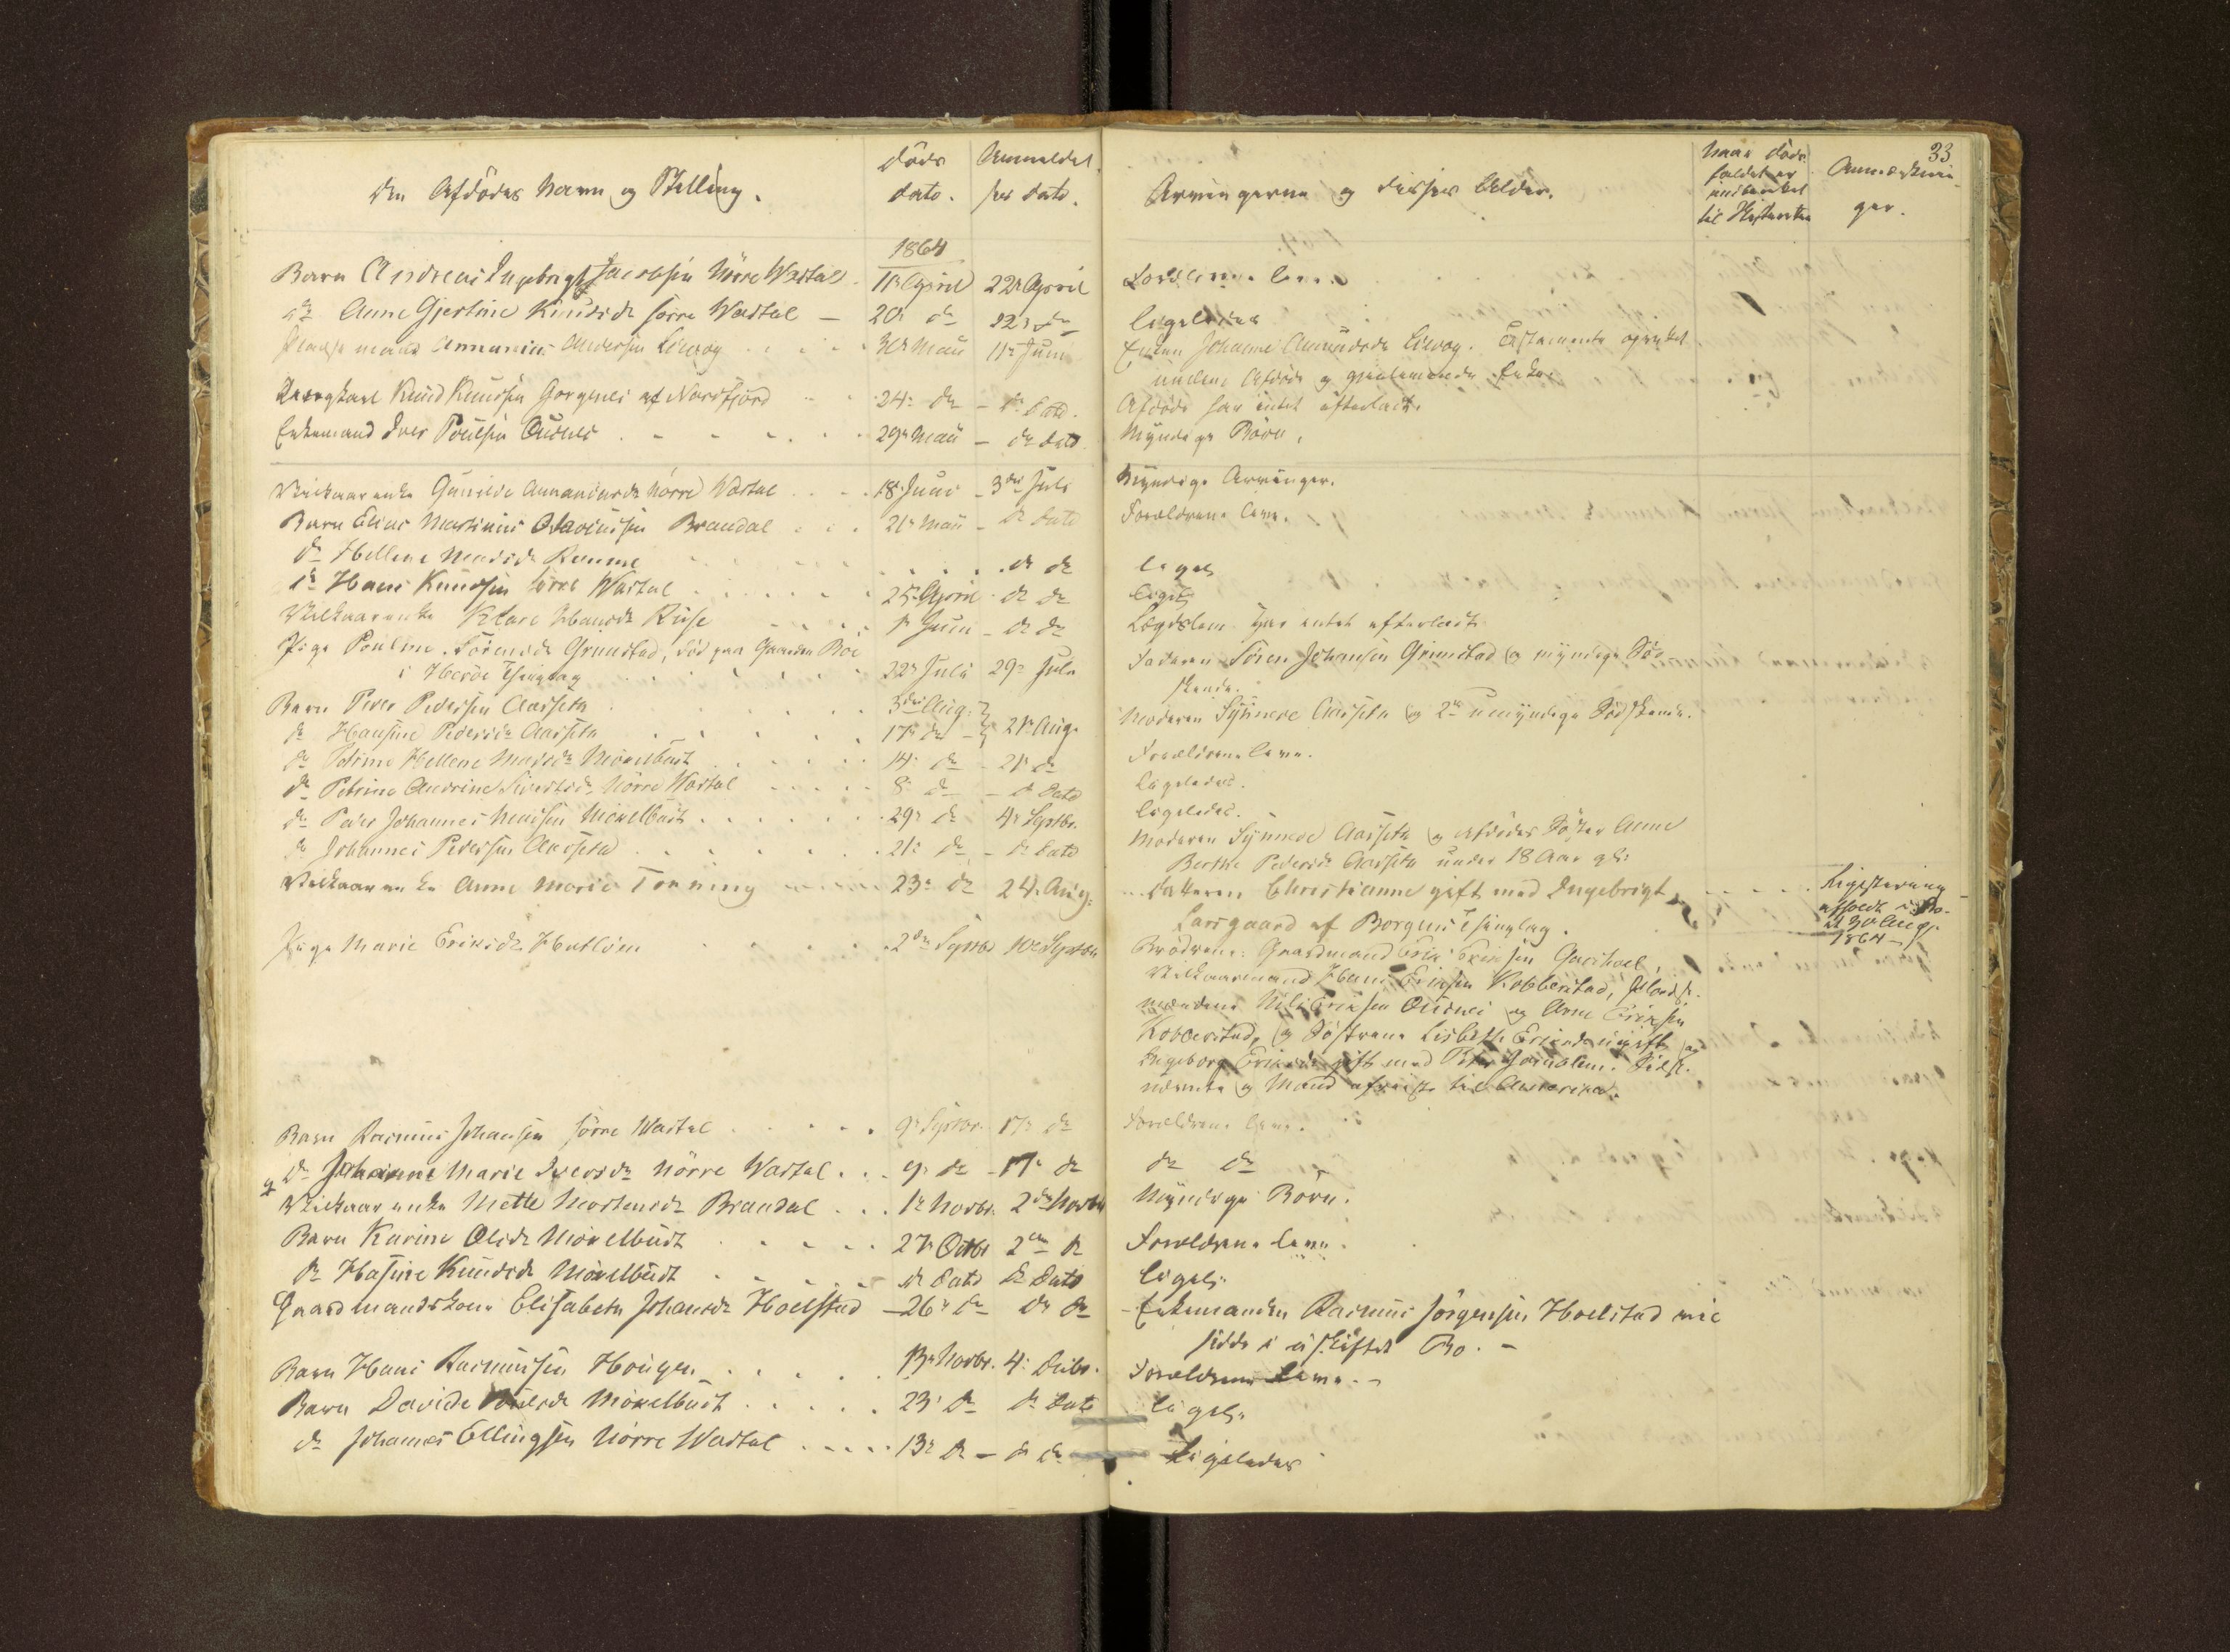 33
Den Afdødes Navn og Stilling.
Døds dato.
Anmeldel ses dato.
Arvingerne og disses Alder.
Naar døds faldet er indberettet til Skifteretten
Anmærkninger.
1864
Barn Andreas Ingebrigt Jacobsen Nørre Wartdal 11te April 22de April Forældrene leve.
do Anne Gjertine Knudsdr søre Wartdal — 20de do 22de do ligeledes
Pladsemand Ammunius Andersen Liavog 30te Maii 11te Juni Enken Johanne Amundsdr Liavog. Testamente oprettet
imellem Afdøde og gjenlevende Enke.
Knud Knudsen af Nordfjord 24de do - do Dato. Afdøde har intet efterladt.
Enkemand Iver Poulsen Outnes 29de Maii - do dato Myndige Børn.
Vilkaarenke Gunilde Amundsdr Nørre Wartdal 18de Juni - 3die Juli Myndige Arvinger.
Barn Elias Martinus Olavessen Brandal 21de Maii - do dato Forældrene leve.
do Hellene Madsdr Remme do do ligel.
do Hans Knudsen søre Wartdal 25de April do do ligel.
Vilkaarenke Hansdr Riise 1te Juni - do do Lægdslem har intet efterladt
Pige Pouline Sørensdr Grimstad, død paa Gaarden Bøe
i Herøe Thinglag 22de Juli 29de Juli Faderen Søren Johansen Grimstad og myndige Sødskende.
Barn Peder Pedersen Aarseth 3die Aug. Moderen Synneve Aarseth og 2de umyndige Sødskende.
do Hansine Pedersdr Aarseth 17de do 21de Aug.
do Petrine Hellene Madsdr Mökelbust 14de do - 21de do Forældrene leve.
do Petrine Andrine Sivertsdr Nørre Wartdal 8de do - do Dato ligeledes.
do Peder Johannes Monsen Mökelbust 29de do 4de Septbr. ligeledes.
do Johannes Pedersen Aarseth 21de do - do Dato Moderen Synneve Aarseth og afdødes Søster Anne
Berthe Pedersdr Aarseth under 18 Aar gl:
Vilkaarenke Anne Marie Tonning 23de do 24de Aug: Datteren Christianne gift med Ingebrigt
Larsgaard af Borgens Thinglag.
Registrering afholdt i Bo. d 30 Aug. 1864
Pige Marie Eriksdr Hatløen 2den Septbr 10de Septbr Brødrene: Gaardmand Erik Eriksen
Vilkaarsmand Hans Eriksen Kobberstad,
mændene Nils Eriksen Outnes og Arne Eriksen
Kobberstad, og Søstrene Lisbeth Eriksdr ugift og
Ingeborg Eriksdr gift med Peter Sidst-
nævnte og Mand afreist til Amerika.
Barn Rasmus Johansen søre Wartdal 9de Septbr. 17de do Forældrene leve.
do Johanne Marie Iversdr Nørre Wartdal 9de do - 17de do do do
Vilkaarenke Mette Mortensdr Brandal 1te Novbr. 2den Novbr Myndige Børn.
Barn Karine Olsdr Mökelbust 27de Octbr 2den do Forældrene leve.
do Hasine Knudsdr Mökelbust do Dato do Dato ligels.
Gaardmandskone Elisabeth Johansdr Hoelstad - 26de do do do - Enkemanden Rasmus Jörgensen Hoelstad vil
sidde i uskiftet Bo. -
Barn Hans Rasmussen Hougen 13de Novbr. 4de Decbr. Forældrene leve. -
Barn Davide Mökelbust 23de do do Dato ligels.
do Johannes Ellingsen Nørre Wartdal 13de do - do do Ligeledes